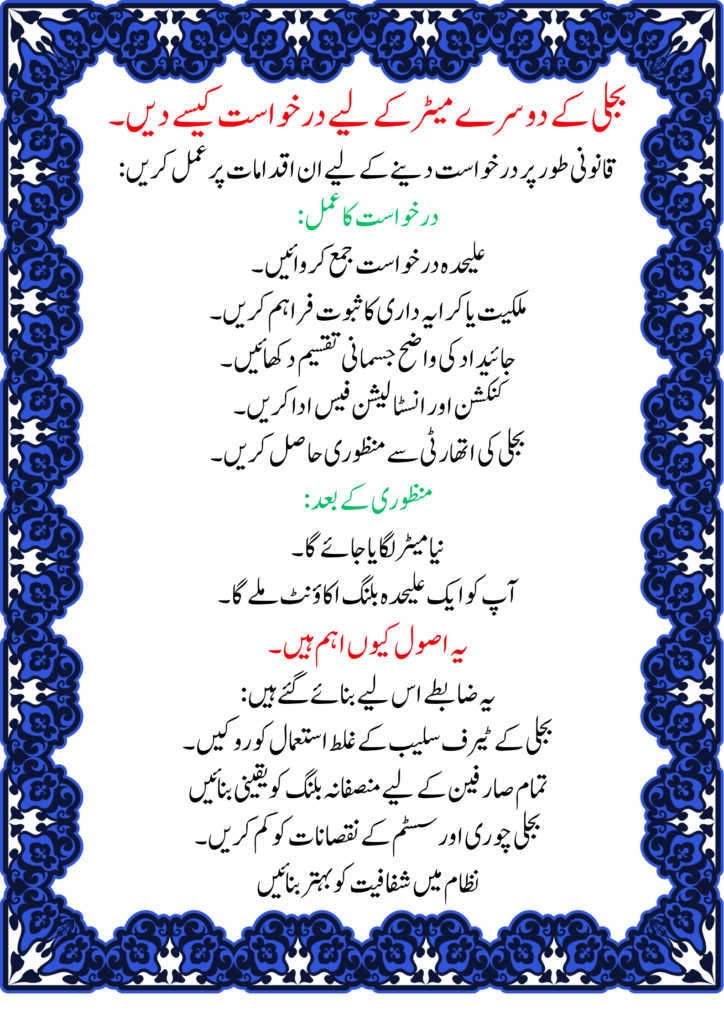 بجلی کے دوسرے میٹر کے لیے درخواست کیسے دیں۔
قانونی طور پر درخواست دینے کے لیے ان اقدامات پر عمل کریں:
درخواست کا عمل:
علیحدہ درخواست جمع کروائیں۔
ملکیت یا کرایہ داری کا ثبوت فراہم کریں۔
جائیداد کی واضح جسمانی تقسیم دکھائیں۔
کنکشن اور انسٹالیشن فیس ادا کریں۔
بجلی کی اتھارٹی سے منظوری حاصل کریں۔
منظوری کے بعد:
نیا میٹر لگایا جائے گا۔
آپ کو ایک علیحدہ بلنگ اکاؤنٹ ملے گا۔
یہ اصول کیوں اہم ہیں۔
یہ ضابطے اس لیے بنائے گئے ہیں:
بجلی کے ٹیرف سلیب کے غلط استعمال کو روکیں۔
تمام صارفین کے لیے منصفانہ بلنگ کو یقینی بنائیں
بجلی چوری اور سسٹم کے نقصانات کو کم کریں۔
نظام میں شفافیت کو بہتر بنائیں